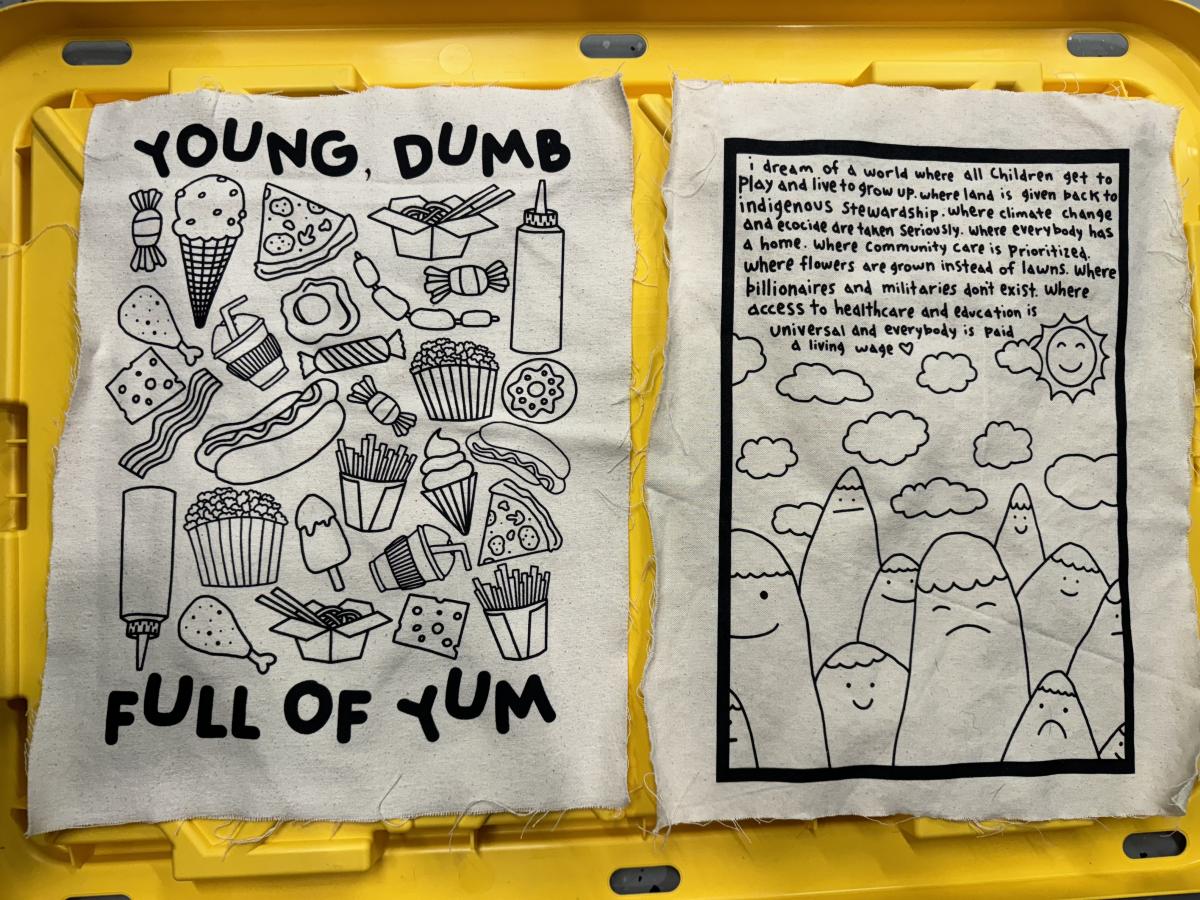 YOUNG, DUMB
FULL OF YUM
i dream of a world where all Children get to
Play and live to grow up. where land is given back to
indigenous stewardship. Where climate change
and ecocide are taken seriously. where everybody has
a home. Where community care is prioritized.
Where flowers are grown instead of lawns. Where
billionaires and militaries don't exist. Where
access to healthcare and education is
universal and everybody is paid
a living wage ♡